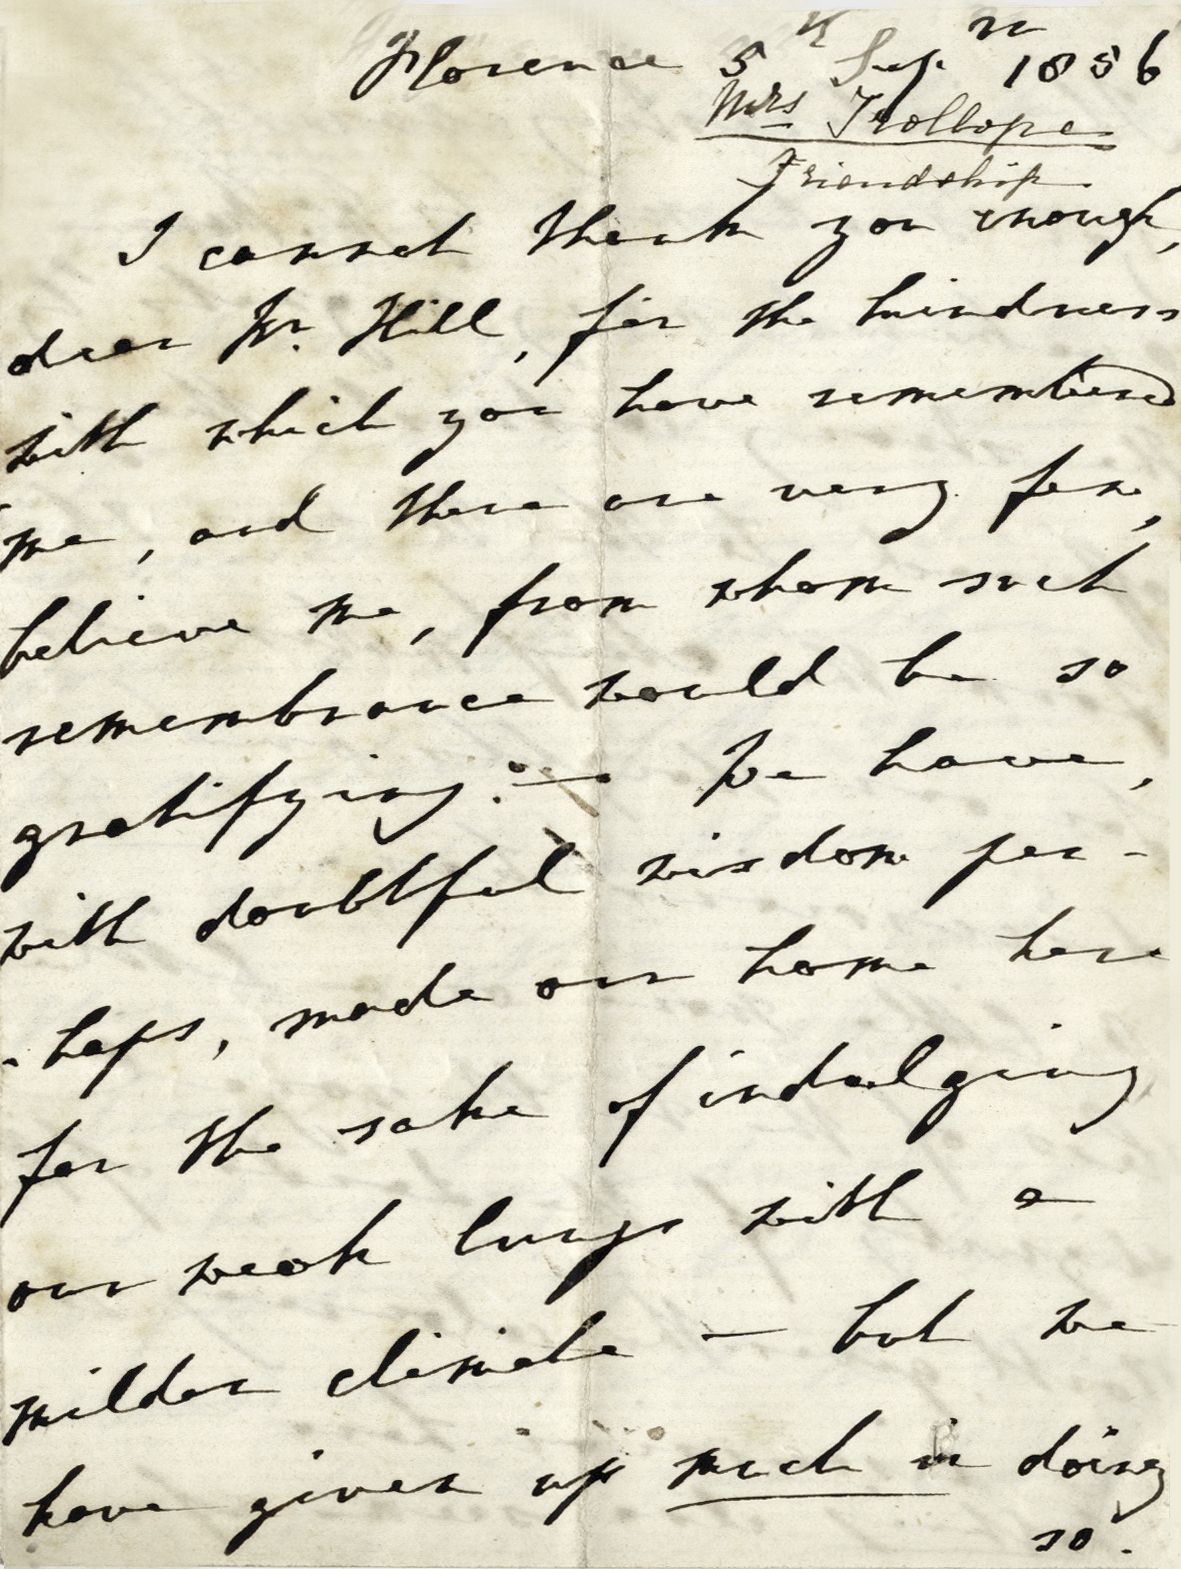 Florence 5th Sepr 1856
Mrs Trollope
Friendship
I cannot thank you enough,
dear Mr. Hill, for the kindness
with which you have remembered
me, and there are very few,
believe me, from whom such
remembrance would be so
gratifying:— We have,
with doubtful wisdom per-
-haps, made our home here
for the sake of indulging
our weak lungs with a
milder climate — but we
have given up much in doing
so.